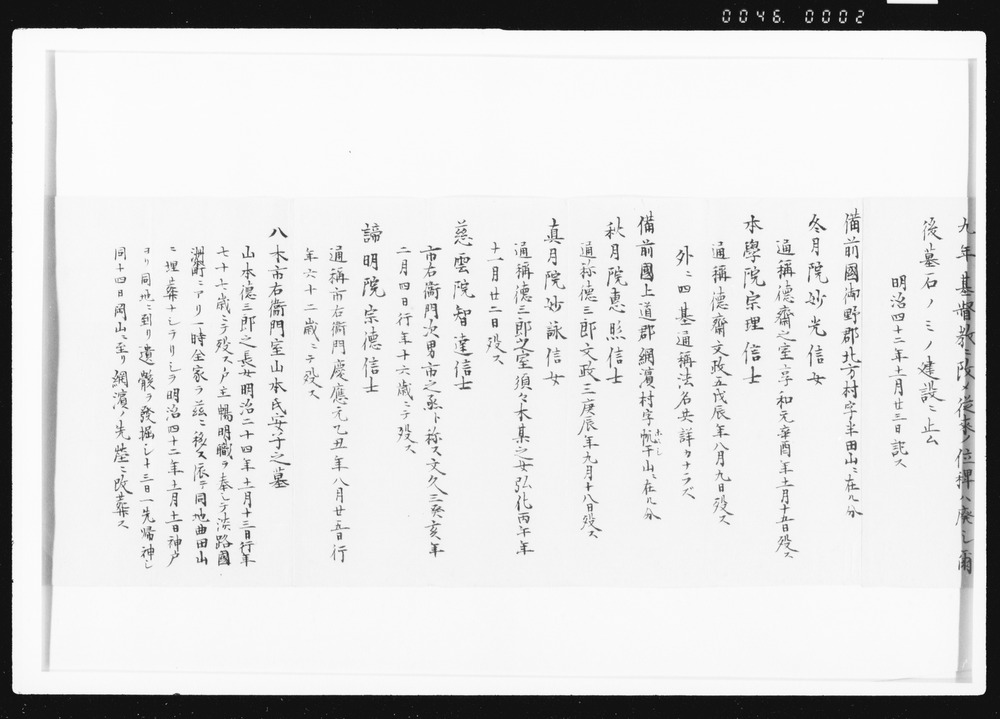 0046. 0002
九年基督教ニ改メ従来ノ位稗ハ廃シ爾
後墓石ノミノ建設ニ止ム
明治四十二年十一月廿三日記ス
備前國御野郡北方村字半田山ニ在ル分
冬月院妙光信女
通稱德齋之室享和元辛酉年十一月十五日歿ス
本學院宗理信士
通稱德齋文政五戊辰年八月九日歿ス
外ニ四基通稱法名共詳カナラズ
備前國上道郡網濱村字帆干山ニ在ル分
ホホシ
秋月院惠照信士
通称德三郎文政三庚辰年九月十八日歿ス
真月院妙詠信女
通稱德三郎之室須々木某之女弘化丙午年
十一月廿二日歿ス
慈雲院智達信士
市右衞門次男市之丞ト祢ス文久三癸亥年
二月四日行年十六歳ニテ歿ス
諦明院宗德信士
通稱市右衞門慶應元乙丑年八月廿五日行
年六十二歳ニテ歿ス
八木市右衞門室山本氏安子之墓
山本德三郎之長女明治二十四年十一月十三日行年
七十六歳ニテ歿ス戸主暢明職ヲ奉シテ淡路國
洲本町ニアリ一時全家ヲ茲ニ移ス依テ同地曲田山
ニ埋葬ナシアリシヲ明治四十二年十一月十一日神戸
ヨリ同地ニ到リ遺骸ヲ發掘シ十三日一先帰神シ
同十四日岡山ニ至リ網濱ノ先塋ニ改葬ス